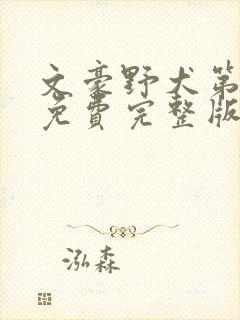 文豪野犬第
免費完整版
泓森